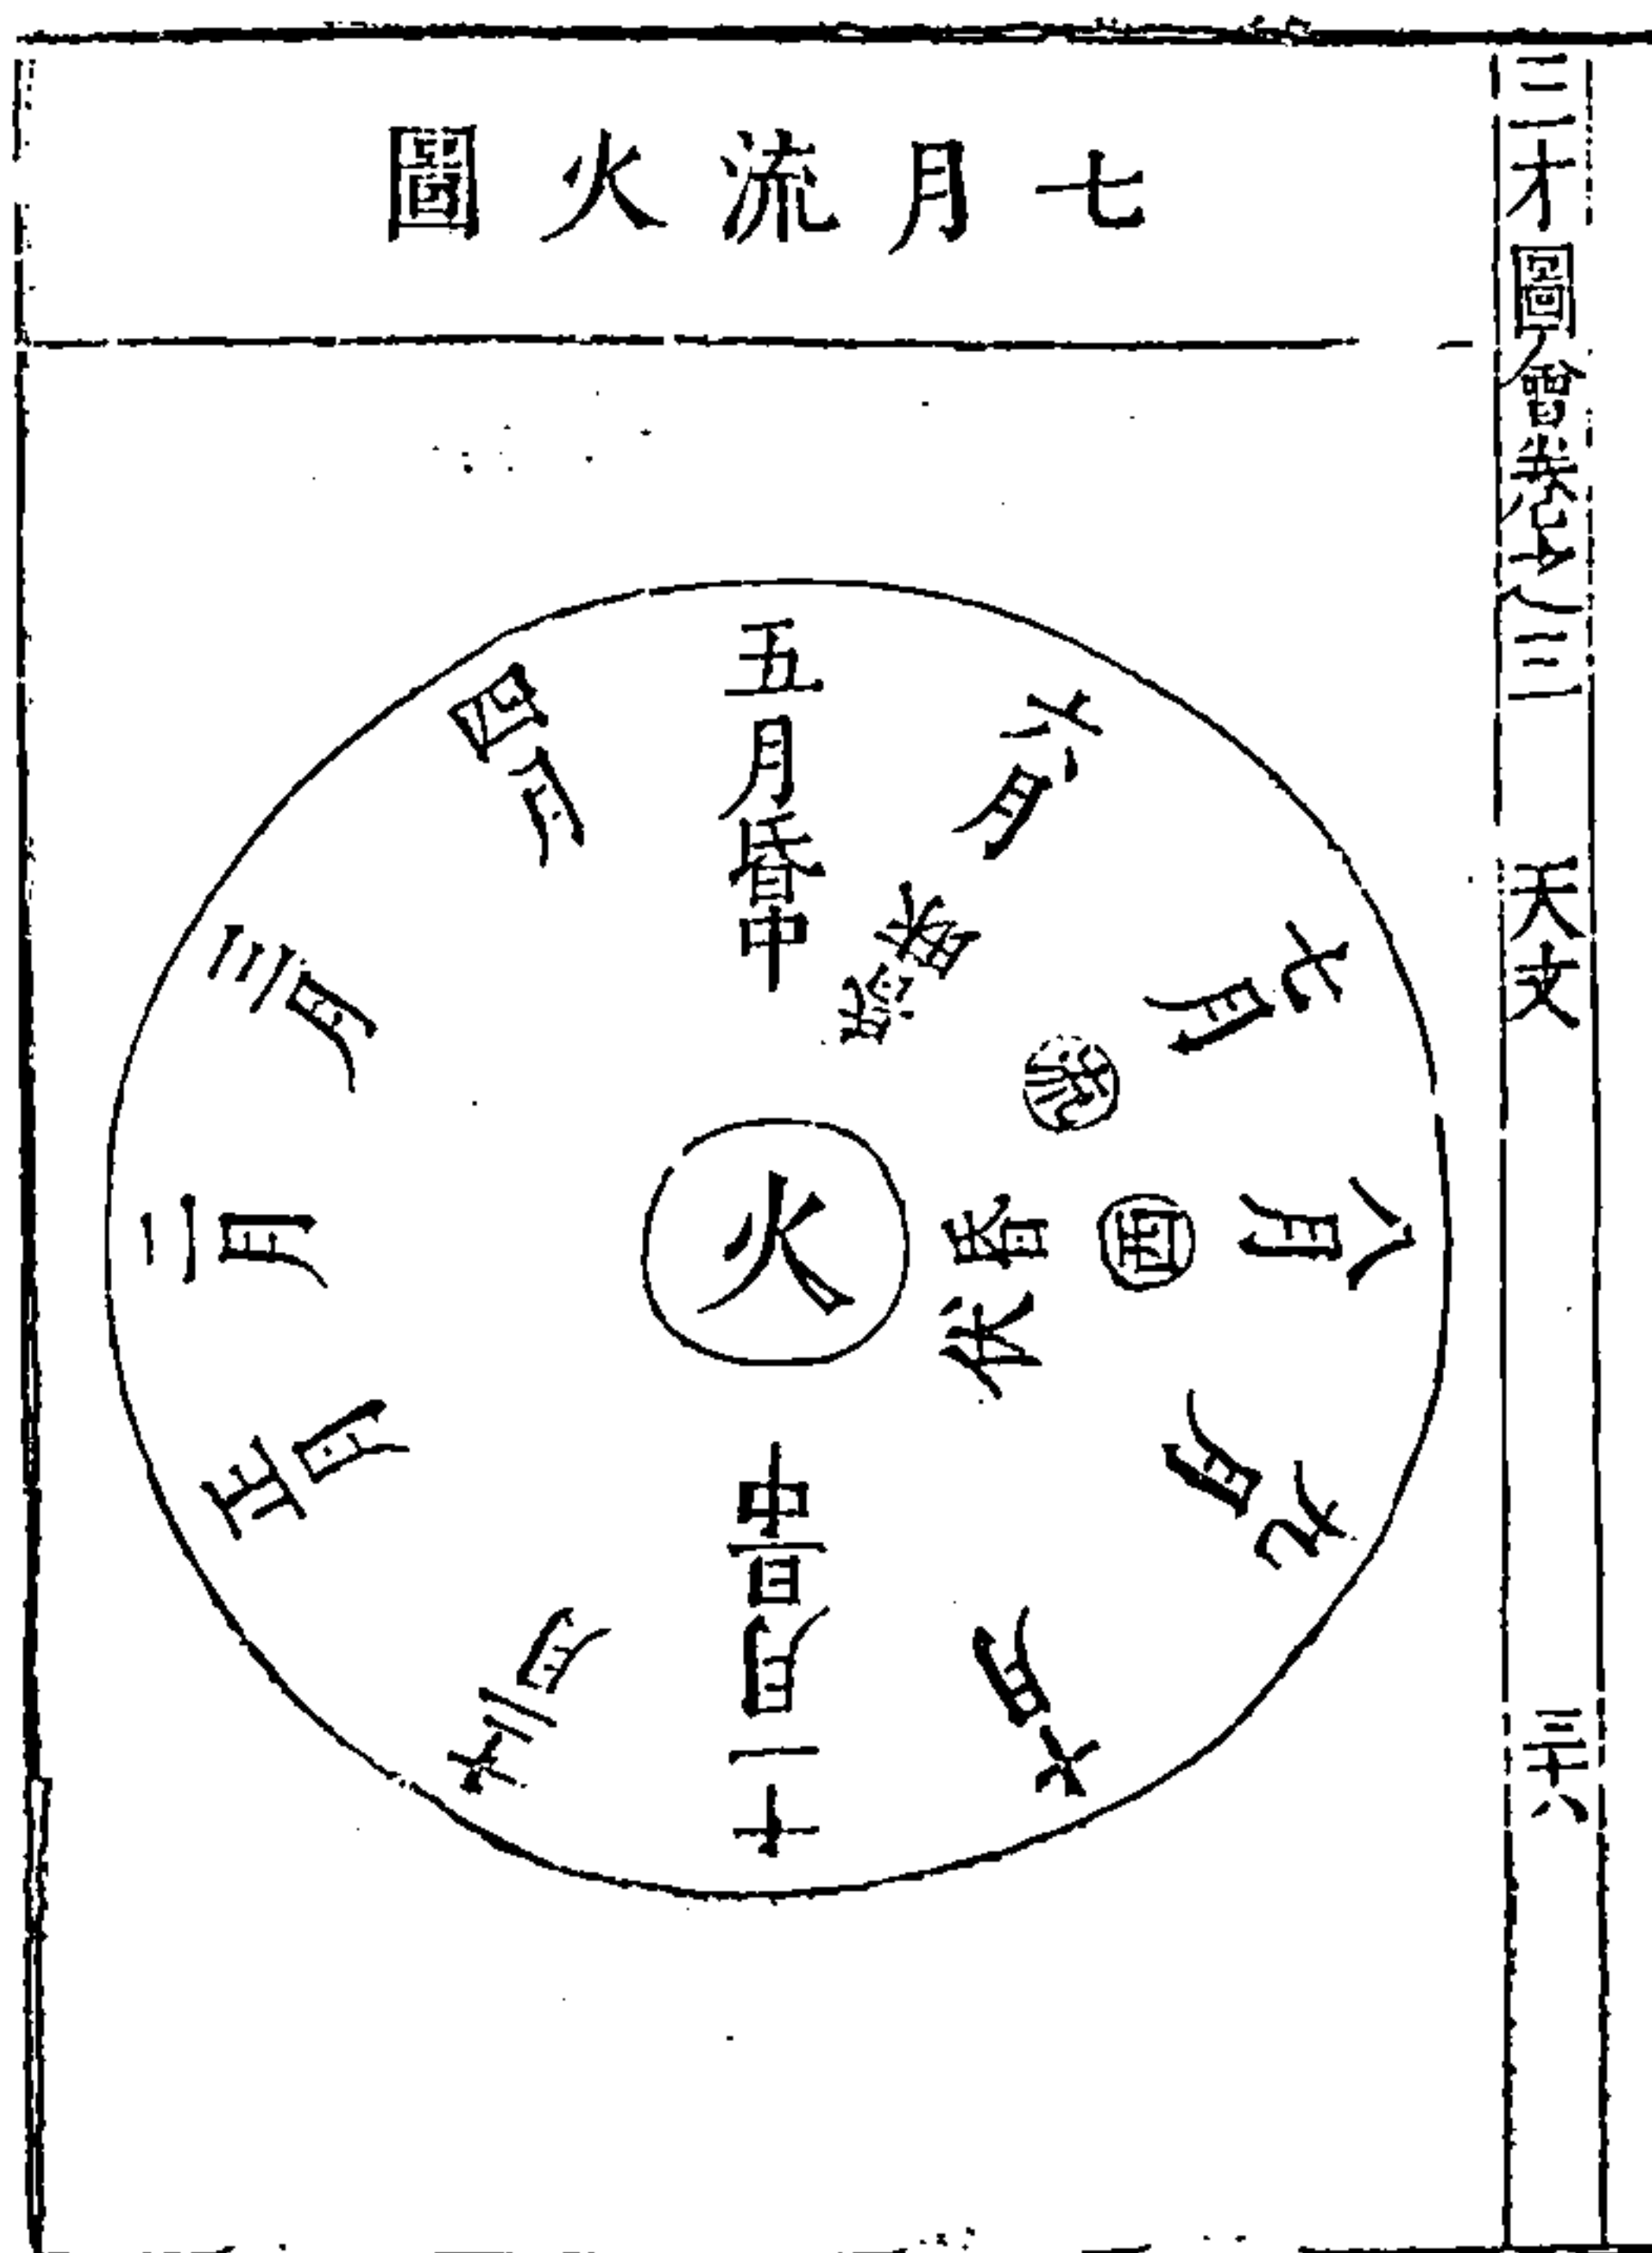 三才圖會卷之三 天文 三十六
七月流火圖
火
五月昏中
六月
七月
流
八月
西
昏伏
九月
十月
十一月旦中
十二月
正月
二月
三月
四月